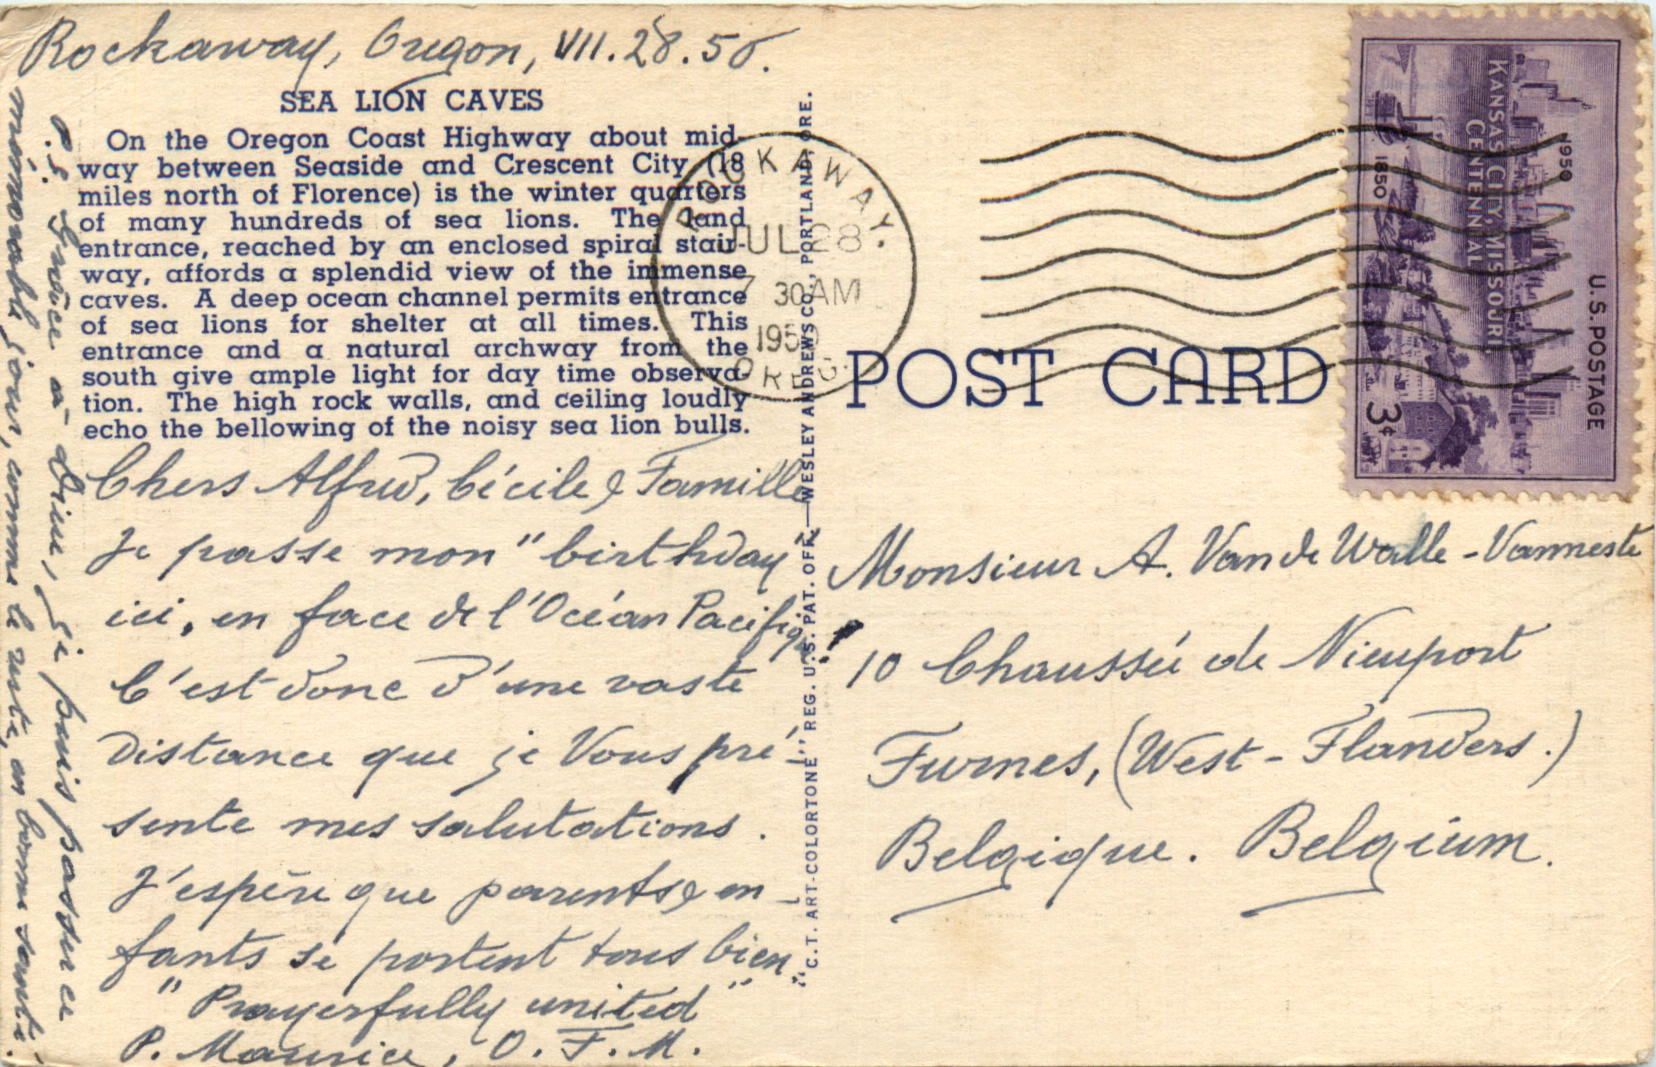 Rockaway, Oregon, VII.28.50.
SEA LION CAVES
On the Oregon Coast Highway about mid-
way between Seaside and Crescent City (18
miles north of Florence) is the winter quarters
of many hundreds of sea lions. The land
entrance, reached by an enclosed spiral stair-
way, affords a splendid view of the immense
caves. A deep ocean channel permits entrance
of sea lions for shelter at all times. This
entrance and a natural archway from the
south give ample light for day time observa-
tion. The high rock walls, and ceiling loudly
echo the bellowing of the noisy sea lion bulls.
Chers Alfred, Cécile & Famille
Je passe mon "birthday"
ici, en face de l'Océan Pacifiq.!
C'est donc d'une vaste
distance que je Vous pré-
sente mes salutations.
J'espère que parents & en-
fants se portent tous bien.
"Prayerfully united"
P. Maurice, O.F.M.
P.S. Grâce à Dieu, je puis passer ce
mémorable jour, comme le reste, en bonne santé.
"C.T. ART-COLORTONE" REG. U.S. PAT. OFF.—WESLEY ANDREWS CO., PORTLAND, ORE.
ROCKAWAY.
JUL 28
7 30AM
1950
OREG.
POST CARD
KANSAS CITY, MISSOURI
CENTENNIAL
1850
1950
U.S. POSTAGE
3¢
Monsieur A. Van de Walle-Vanneste
10 Chaussée de Nieuport
Furnes, (West-Flanders.)
Belgique. Belgium.